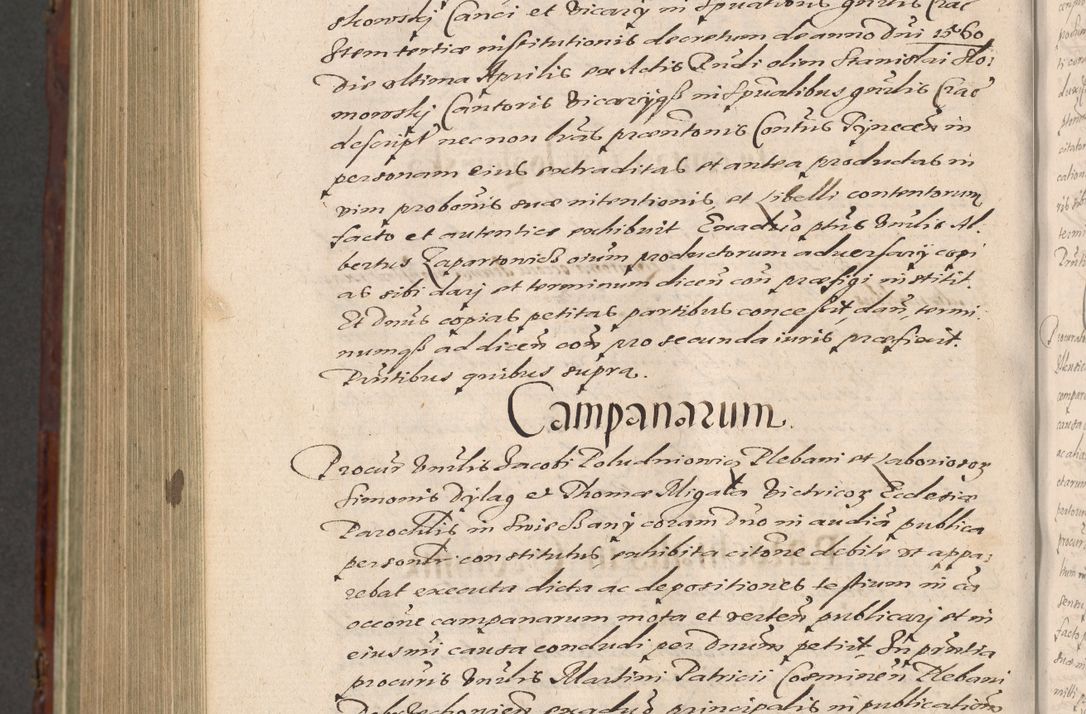 skowskj Canci et Vicarij in spualibus gnrlis Crac
Item tertiæ institutionis decretum de anno Dni 1560
Die ultima Aprilis ex Actis Rndi olim Stanislai Slo:
mowskj Cantoris Vicarijqß in Spualibus gnrlis Crac
descript necnon lras præntonis Contus Tynecen in
personam eius extraditas et antea productas in
vim probonis suæ intentionis et Libelli contentorum
facto et autentice exhibuit. Exaduo ptus Vnrlis Al:
bertus Zapartowicß orum productorum adversarij copi
as sibi darj et terminum dicen con præfigi institit.
Et Dnus copias petitas partibus concessit, dan, termi:
numqß ad dicen con pro secunda iuris præfixit.
Pntibus quibus supra.
Campanarum.
Procur Vnrlis Jacobi Poludniowicz Plebani et Laboriosor
Simonis Dylag et Thomæ Migała Victricor Ecclesiæ
Parochlis in Swießany coram Dno in audia publica
personlr constitutus exhibita citone debite ut appa:
rebat executa dicta ac depositiones testium in ca
occone campanarum mota et verten publicarj et in
eiusmi causa concludi per Dnum petiit. In prntia
procuris Vnrlis Martini Patricii Cosminen Plebani